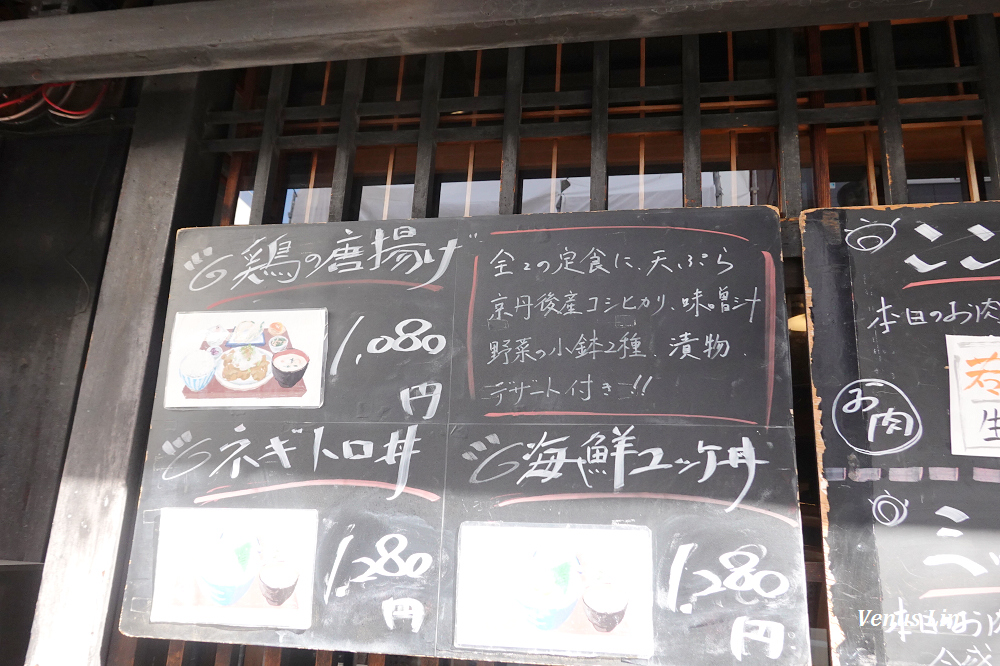 鶏の唐揚げ
1,080
円
全ての定食に、天ぷら
京丹後産コシヒカリ、味噌汁
野菜の小鉢2種、漬物、
デザート付き!!
ネギトロ丼
1,280
円
海鮮ユッケ丼
1,280
円
本日のお肉
お肉
若
生
本日のお肉
Venus Lin